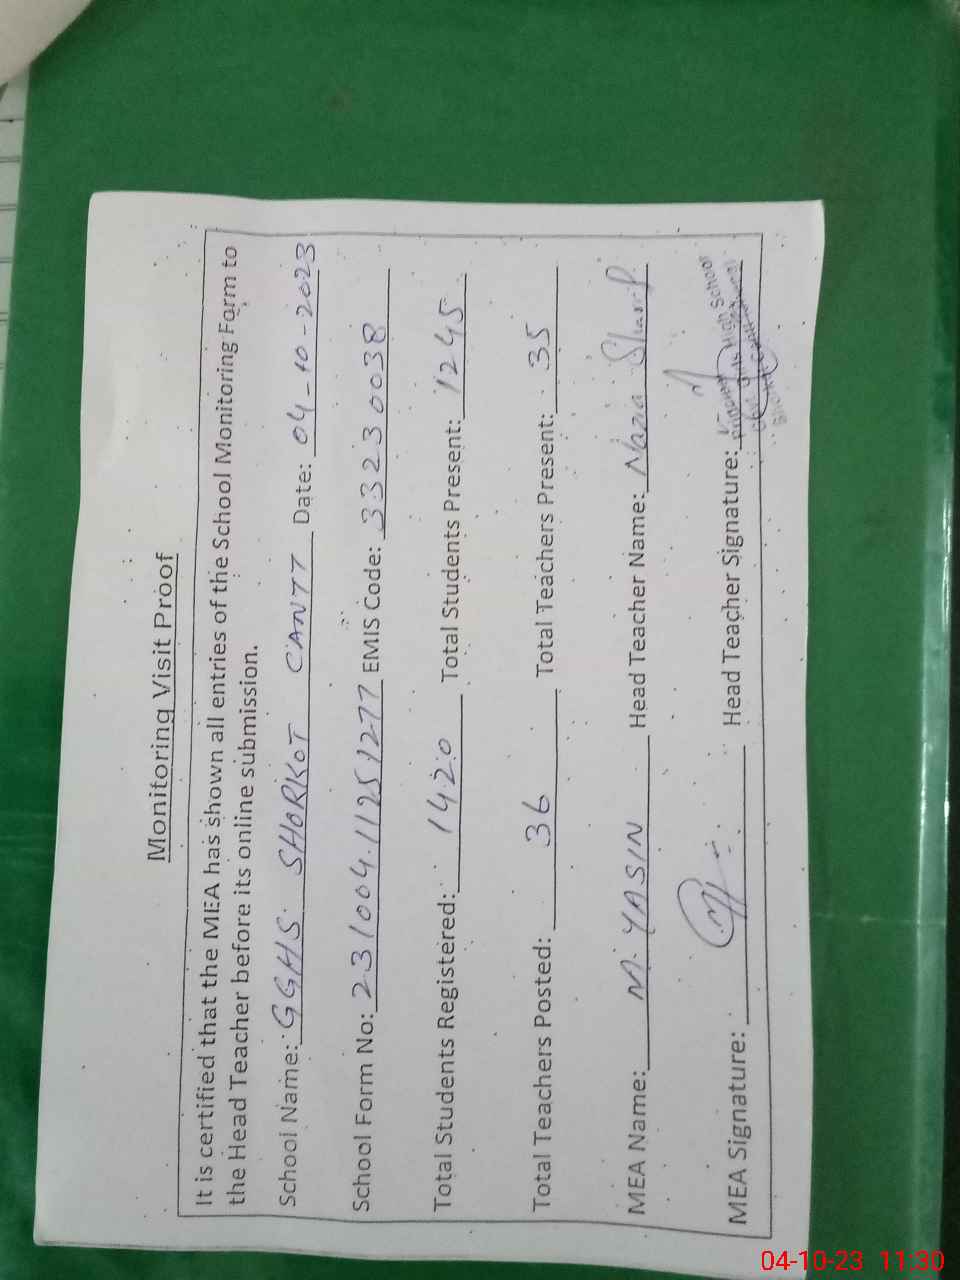 Monitoring Visit Proof
It is certified that the MEA has shown all entries of the School Monitoring Form to
the Head Teacher before its online submission.
School Name: GGHS. SHORKOT CANTT Date: 04-10-2023
School Form No: 231004.11251277 EMIS Code: 33230038
Total Students Registered: 1420 Total Students Present: 1245
Total Teachers Posted: 36 Total Teachers Present: 35
MEA Name: M. YASIN Head Teacher Name: Nazia Sharif
MEA Signature: Head Teacher Signature:
Principal
Govt. Girls High School
Shorkot Cantt
04-10-23 11:30